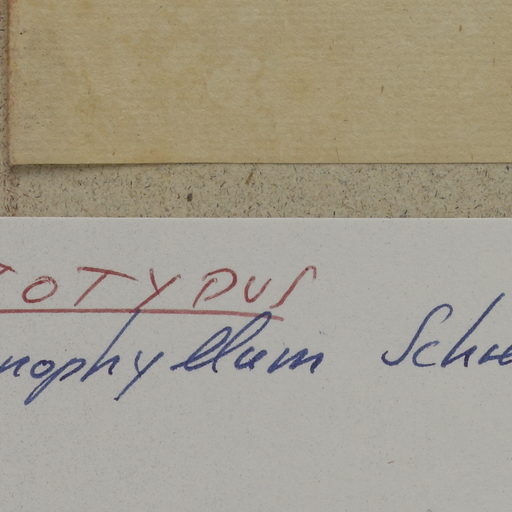 TOTYPUS
nophyllum Schre